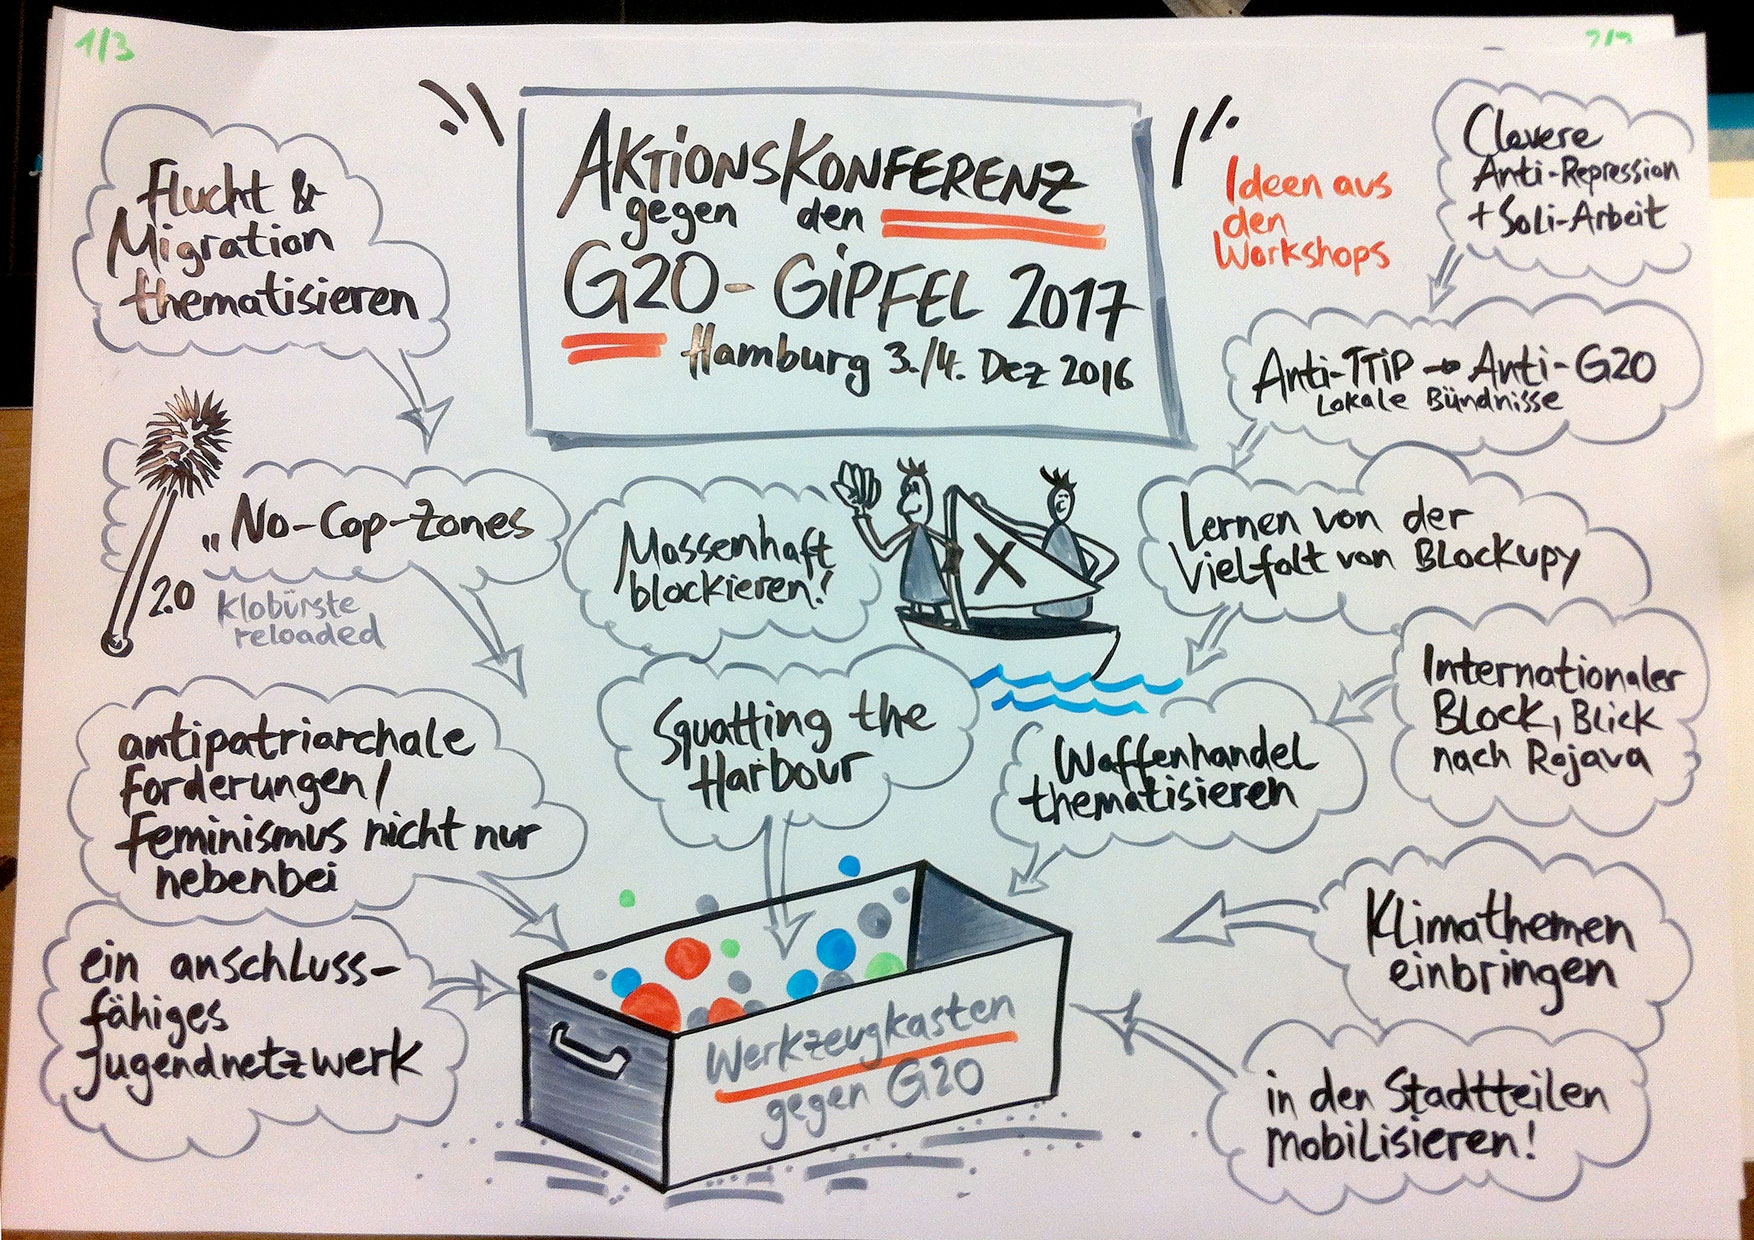 1/3
AKTIONSKONFERENZ
gegen den
G20-GIPFEL 2017
Hamburg 3./4. Dez 2016
Ideen aus
den
Workshops
Flucht &
Migration
thematisieren
„No-Cop-Zones
2.0
Klobürste
reloaded
antipatriarchale
Forderungen/
Feminismus nicht nur
nebenbei
ein anschluss-
fähiges
Jugendnetzwerk
Massenhaft
blockieren!
X
Squatting the
Harbour
Clevere
Anti-Repression
+ Soli-Arbeit
Anti-TTIP → Anti-G20
Lokale Bündnisse
Lernen von der
Vielfalt von Blockupy
Internationaler
Block, Blick
nach Rojava
Waffenhandel
thematisieren
Klimathemen
einbringen
in den Stadtteilen
mobilisieren!
Werkzeugkasten
gegen G20